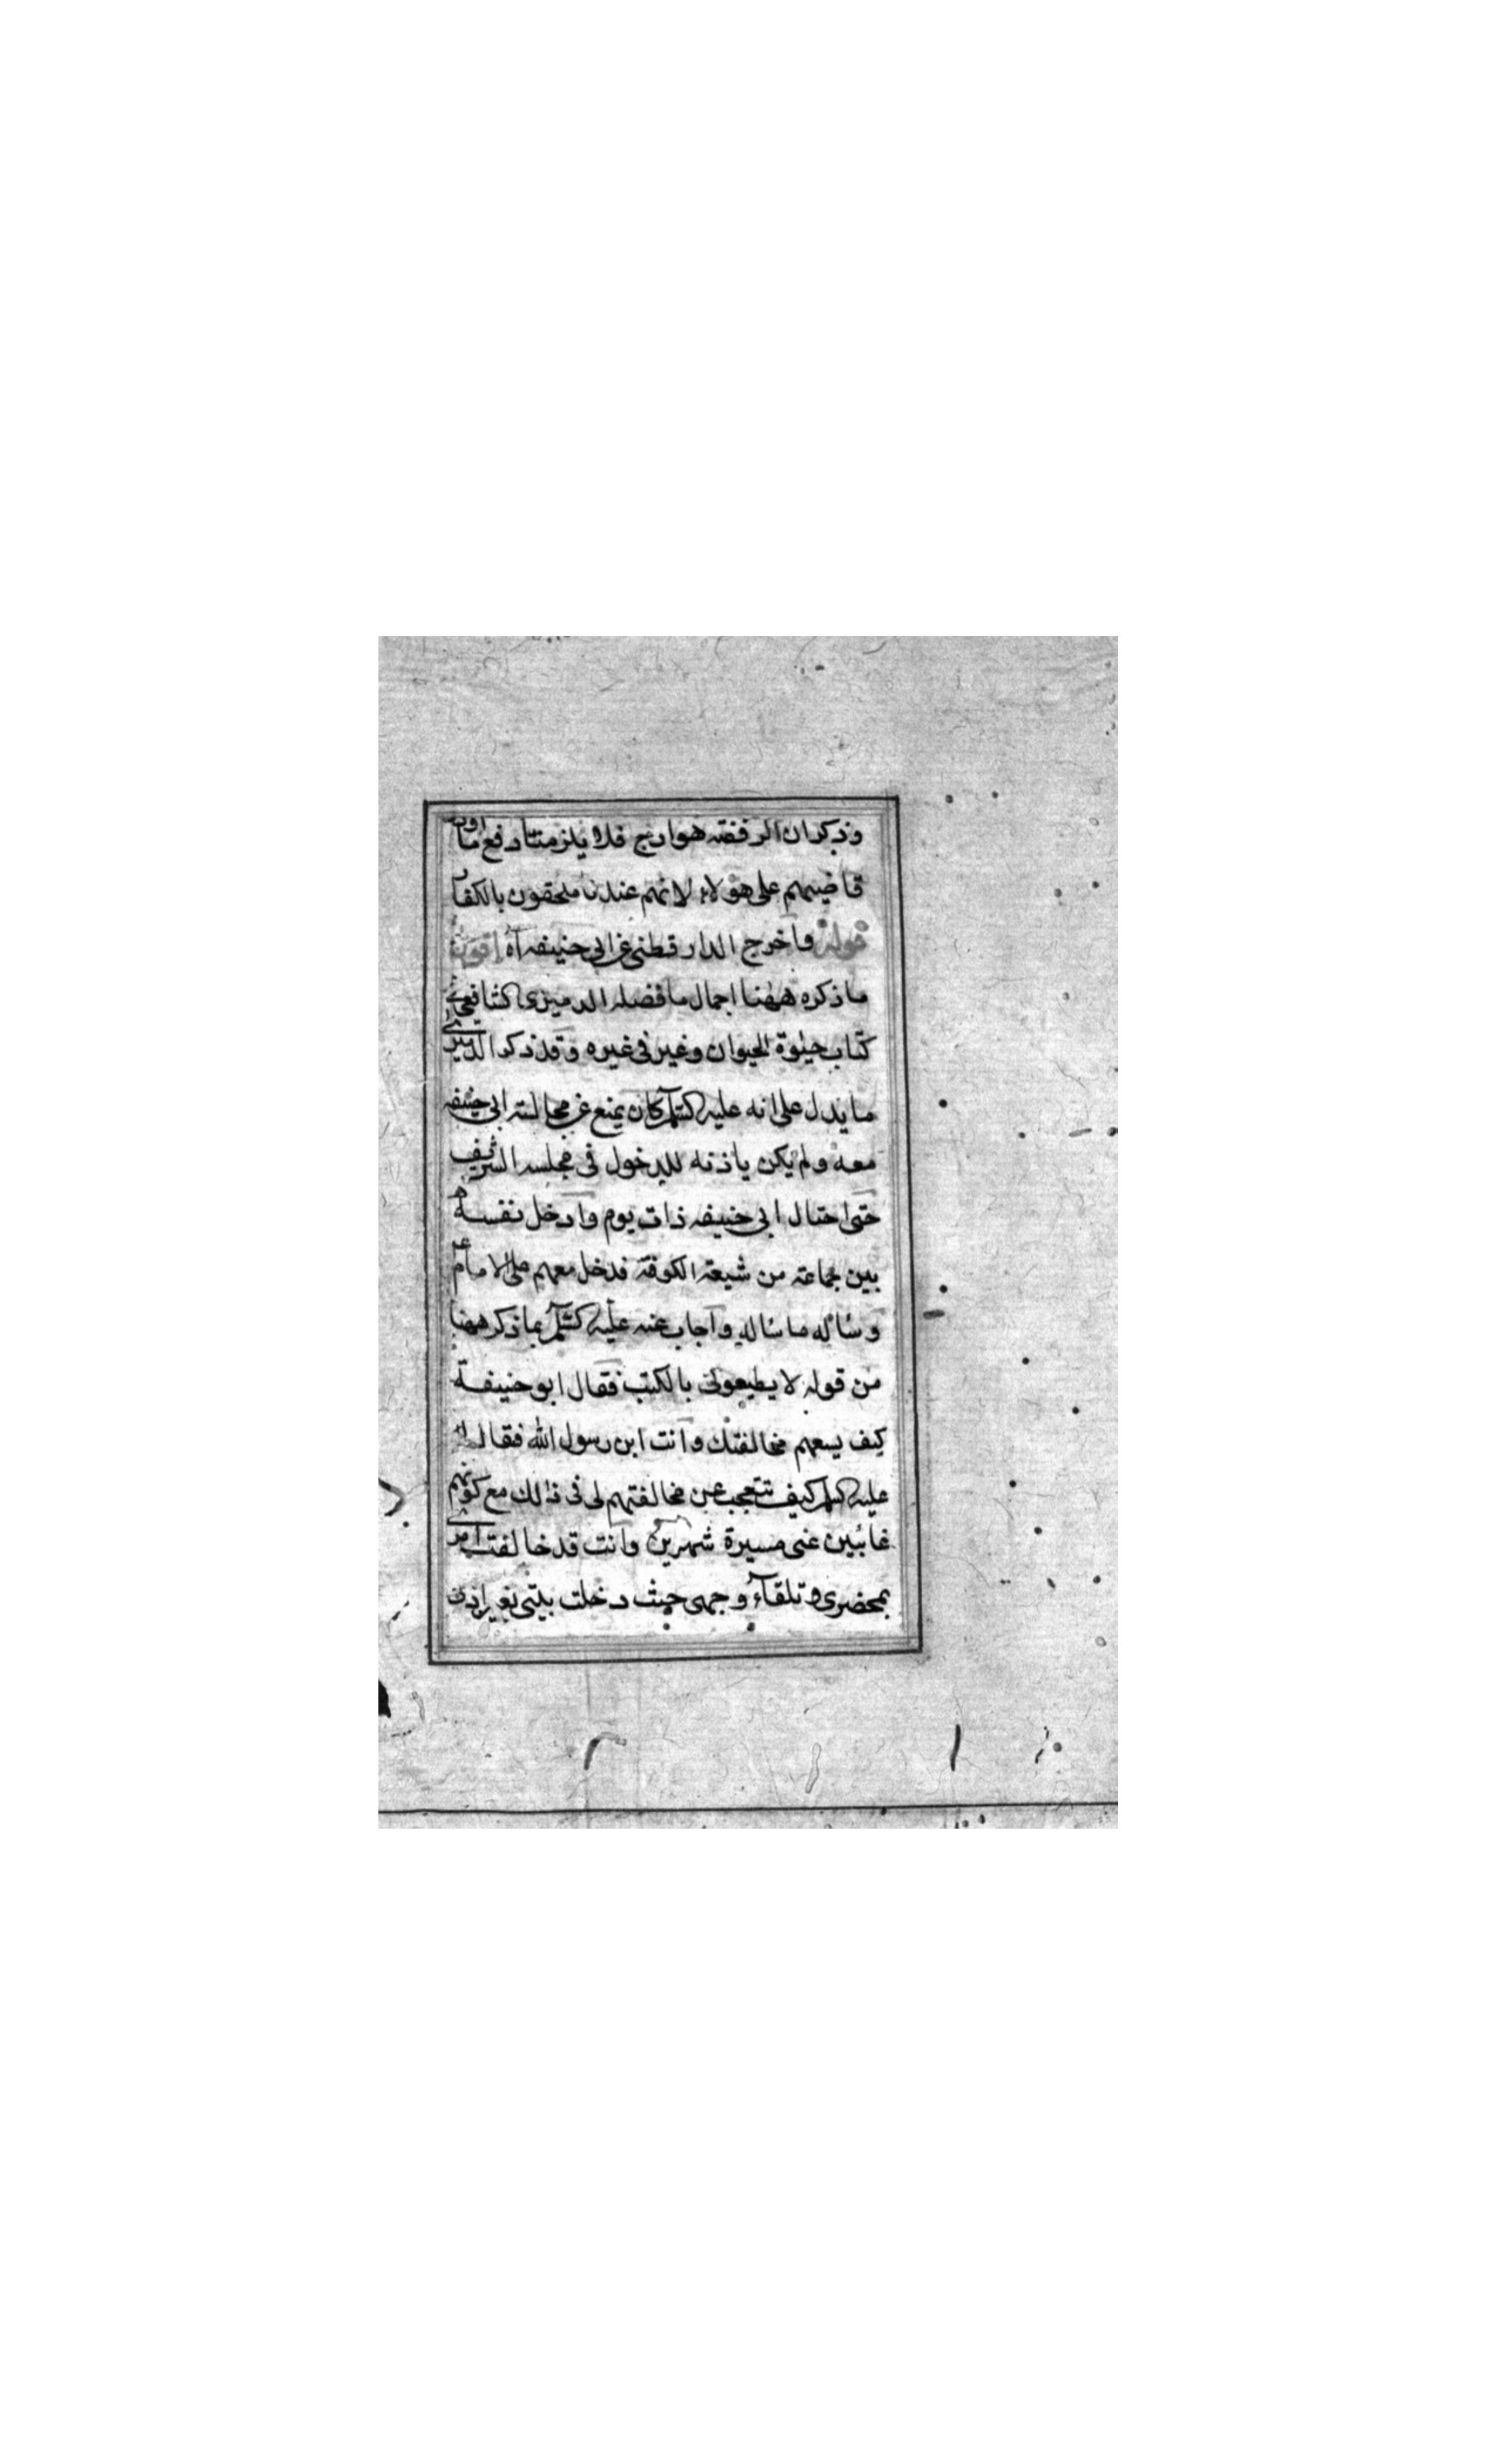 وذكر ان الرفقه هوا رج فلا يلزمنا دفع ما اورد
قاضيهم على هؤلاء لانهم عندنا ملحقون بالكفار
قوله واخرج الدار قطنى عن ابى حنيفه آه اقول
ما ذكره ههنا اجمال ما فصله الدميرى الشافعى فى
كتاب حيوة الحيوان وغيره فى غيره وقد ذكر الدميرى
ما يدل على انه عليه السلم كان يمنع عن مجالسته ابى حنيفه
معه ولم يكن ياذنه للدخول فى مجلسه الشريف
حتى احتال ابى حنيفه ذات يوم وادخل نفسه
بين جماعة من شيعة الكوفة فدخل معهم على الامام ع
وسأله ما سأله واجاب عنه عليه السلم بما ذكر ههنا
من قوله لا يطيعونى بالكتب فقال ابو حنيفة
كيف يسعهم مخالفتك وانت ابن رسول الله فقال له
عليه السلم كيف تتعجب عن مخالفتهم لى فى ذالك مع كونهم
غائبين عنى مسيرة شهرين وانت قد خالفت امرى
بمحضرى وتلقاء وجهى حيث دخلت بيتى بغير اذنى